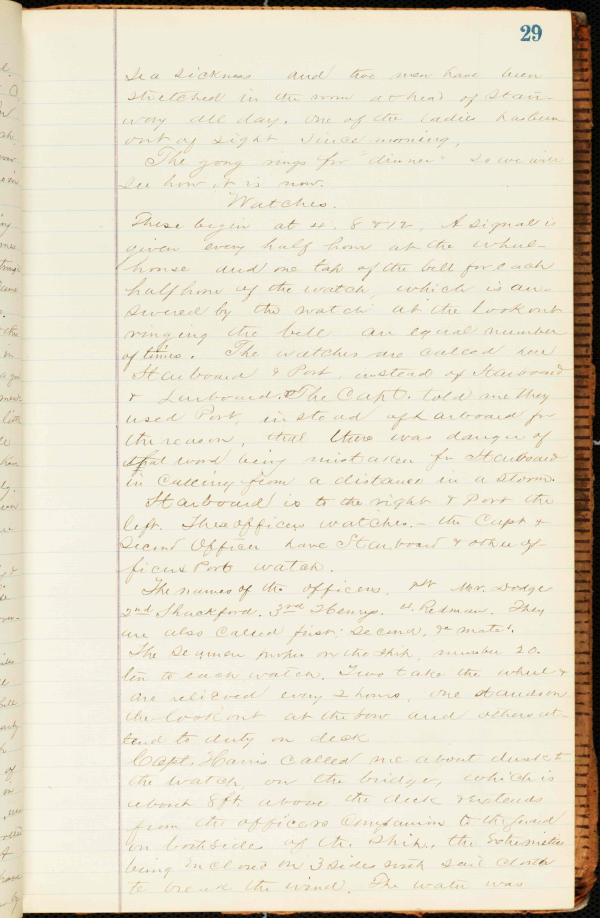 29
Sea Sickness and two men have been
stretched in the room at head of Stair-
way all day. One of the ladies has been
out of sight since morning,
The gong rings for "dinner" so we will
see how it is now.
Watches.
These begin at 4. 8 & 12. A signal is
given every half hour at the wheel-
house and one tap of the bell for each
half hour of the watch, which is an-
swered by the watch at the lookout
ringing the bell an equal number
of times. The watches are called here
Starboard & Port, instead of Starboard
& Larboard. The Capt. told me they
used Port, instead of Larboard for
the reason, that there was danger of
that word being mistaken for Starboard
in calling from a distance in a storm.
Starboard is to the right & Port the
left. The officers watches. - the Capt &
Second Officer have Starboard & other of-
ficers Port watch.
The names of the officers, 1st Mr. Dodge
2nd Shackford. 3rd Henry. 4. Redman. They
are also called first, second, &c mates.
The Seamen proper on the Ship, number 20.
ten to each watch. Two take the wheel &
are relieved every 2 hours, one stands on
the lookout at the bow and others at-
tend to duty on deck
Capt. Harris called me about dusk to
the watch, on the bridge, which is
about 8ft above the deck & extends
from the officers Companion to the
on both sides of the Ship, the extremities
being inclosed on 3 sides with sail cloth
to break the wind. The water was